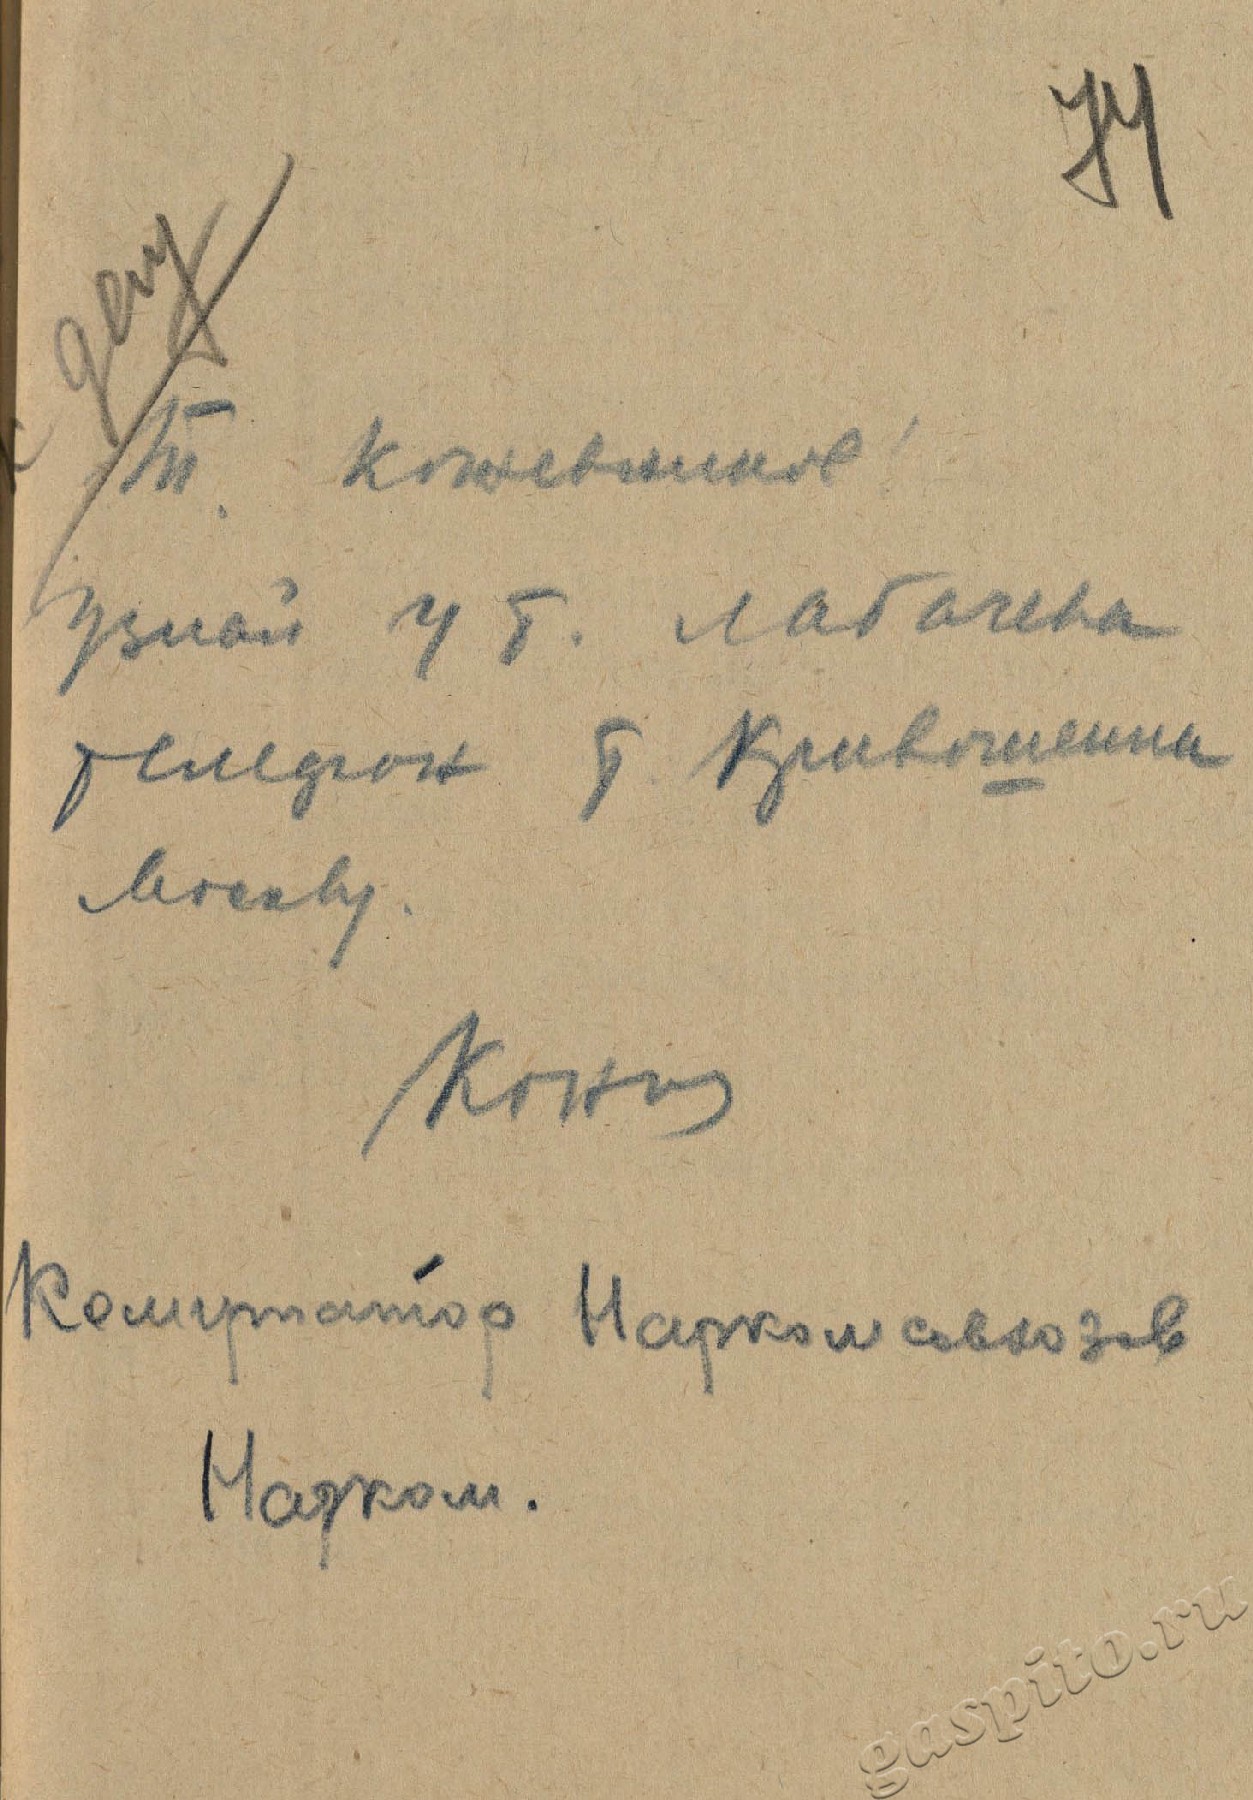 74
к делу
Т. Кожевников!
Узнай у т. Лабачева
телефон т. Кривошеина
Москву.
Комутатор Наркомсовхозов
Нарком.
gaspito.ru